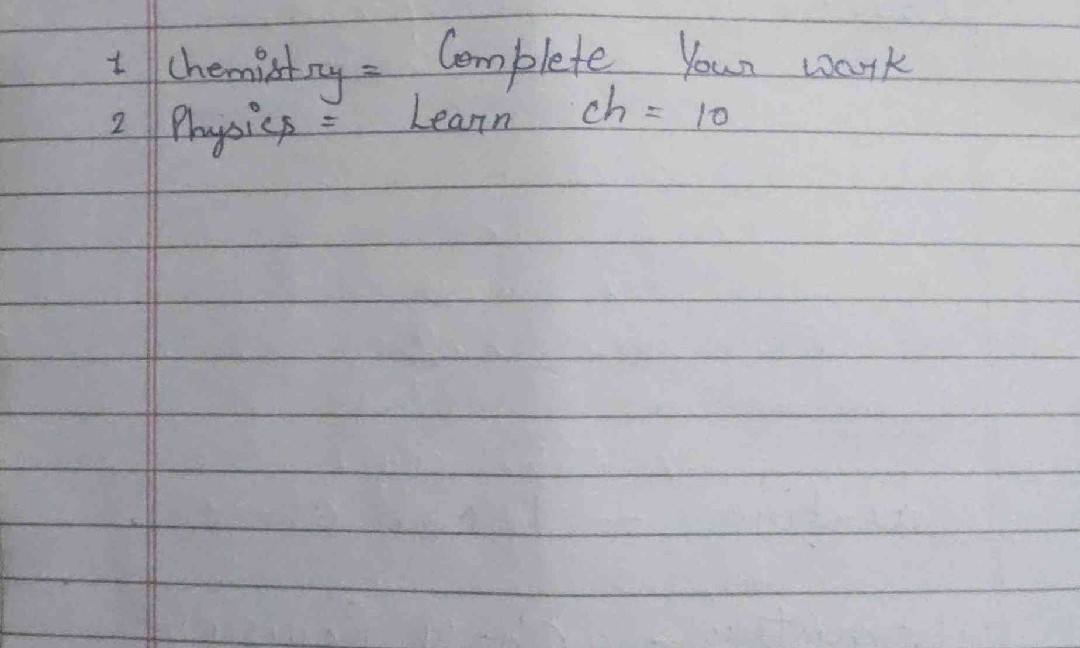 1 Chemistry = Complete Your work
2 Physics = Learn ch = 10